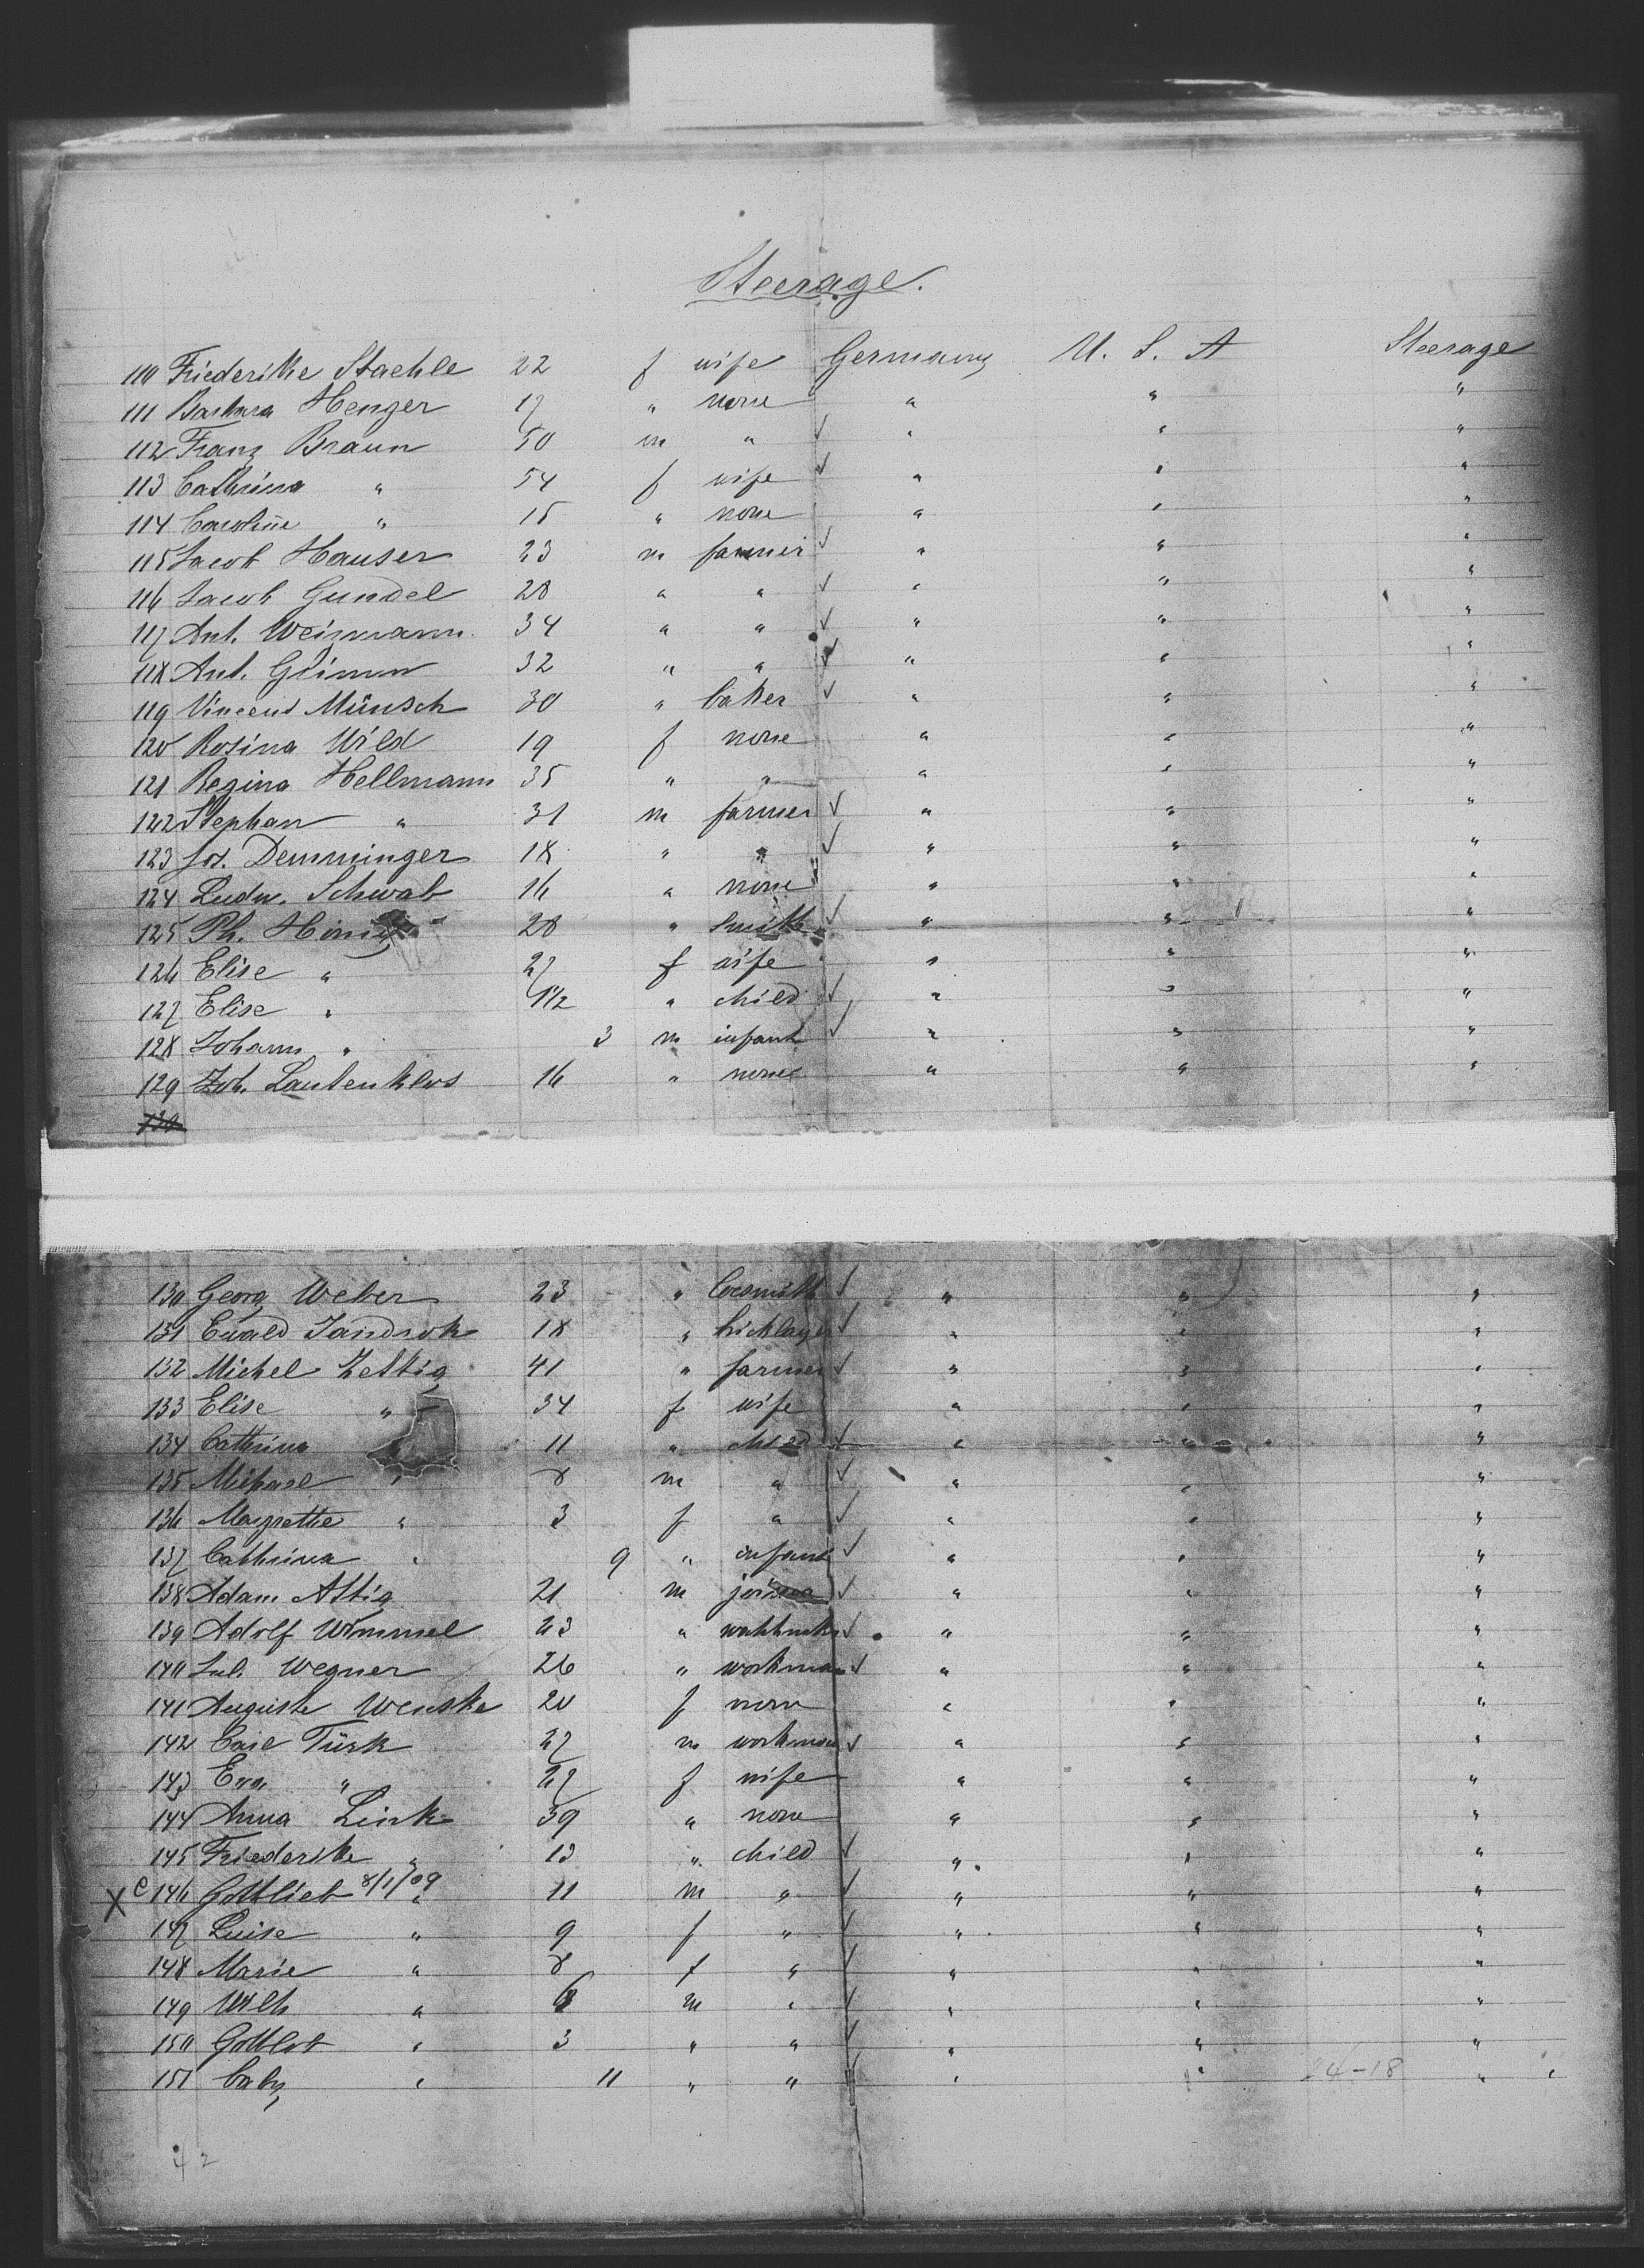 Steerage.
110 Friederike Staehle 22 f wife Germany U. S. A Steerage
111 Barbara Henger 17 " none " " "
112 Franz Braun 50 m " ✓ " " "
113 Cathrina " 54 f wife ✓ " " "
114 Caroline " 15 " none " " "
115 Jacob Hauser 23 m farmer ✓ " " "
116 Jacob Gundel 28 " " ✓ " " "
117 Ant. Weismann 34 " " ✓ " " "
118 Ant. Grimm 32 " " ✓ " " "
119 Vincent Münsch 30 " baker ✓ " " "
120 Rosina Wild 19 f none " " "
121 Regina Hellmann 35 " " " " "
122 Stephan " 31 m farmer ✓ " " "
123 Jos. Demminger 18 " " ✓ " " "
124 Ludw. Schwab 16 " none ✓ " " "
125 Ph. 28 " smith ✓ " " "
126 Elise " 27 f wife " " "
127 Elise " 1 1/2 " child ✓ " " "
128 Johann " 3 m infant ✓ " " "
129 Joh. Lautenklos 16 " none " " "
130
130 Georg Weber 23 " locsmith ✓ " " "
131 Ewald Jandrok 18 " bricklayer ✓ " " "
132 Michel Zettig 41 " farmer ✓ " " "
133 Elise " 34 f wife " " "
134 Cathrina 11 " child ✓ " " "
135 Michael " 8 m " ✓ " " "
136 Margrette " 3 f " ✓ " " "
137 Cathrina " 9 " infant ✓ " " "
138 Adam Attig 21 m ✓ " " "
139 Adolf Wimmel 23 " ✓ " " "
140 Jul. Wegner 26 " workman ✓ " " "
141 Auguste Wenske 20 f none " " "
142 Carl Türk 27 m workman ✓ " " "
143 Eva " 27 f wife " " "
144 Anna Link 39 " none " " "
145 Friederike " 13 " child ✓ " " "
X c 146 Gottlieb 8/1/09 " 11 m " ✓ " " "
147 Luise " 9 f " ✓ " " "
148 Marie " 8 f " ✓ " " "
149 Wilh " 6 m " ✓ " " "
150 Gottlob " 3 " " ✓ " " "
151 baby " 11 " " ✓ " " 24-18 " "
42